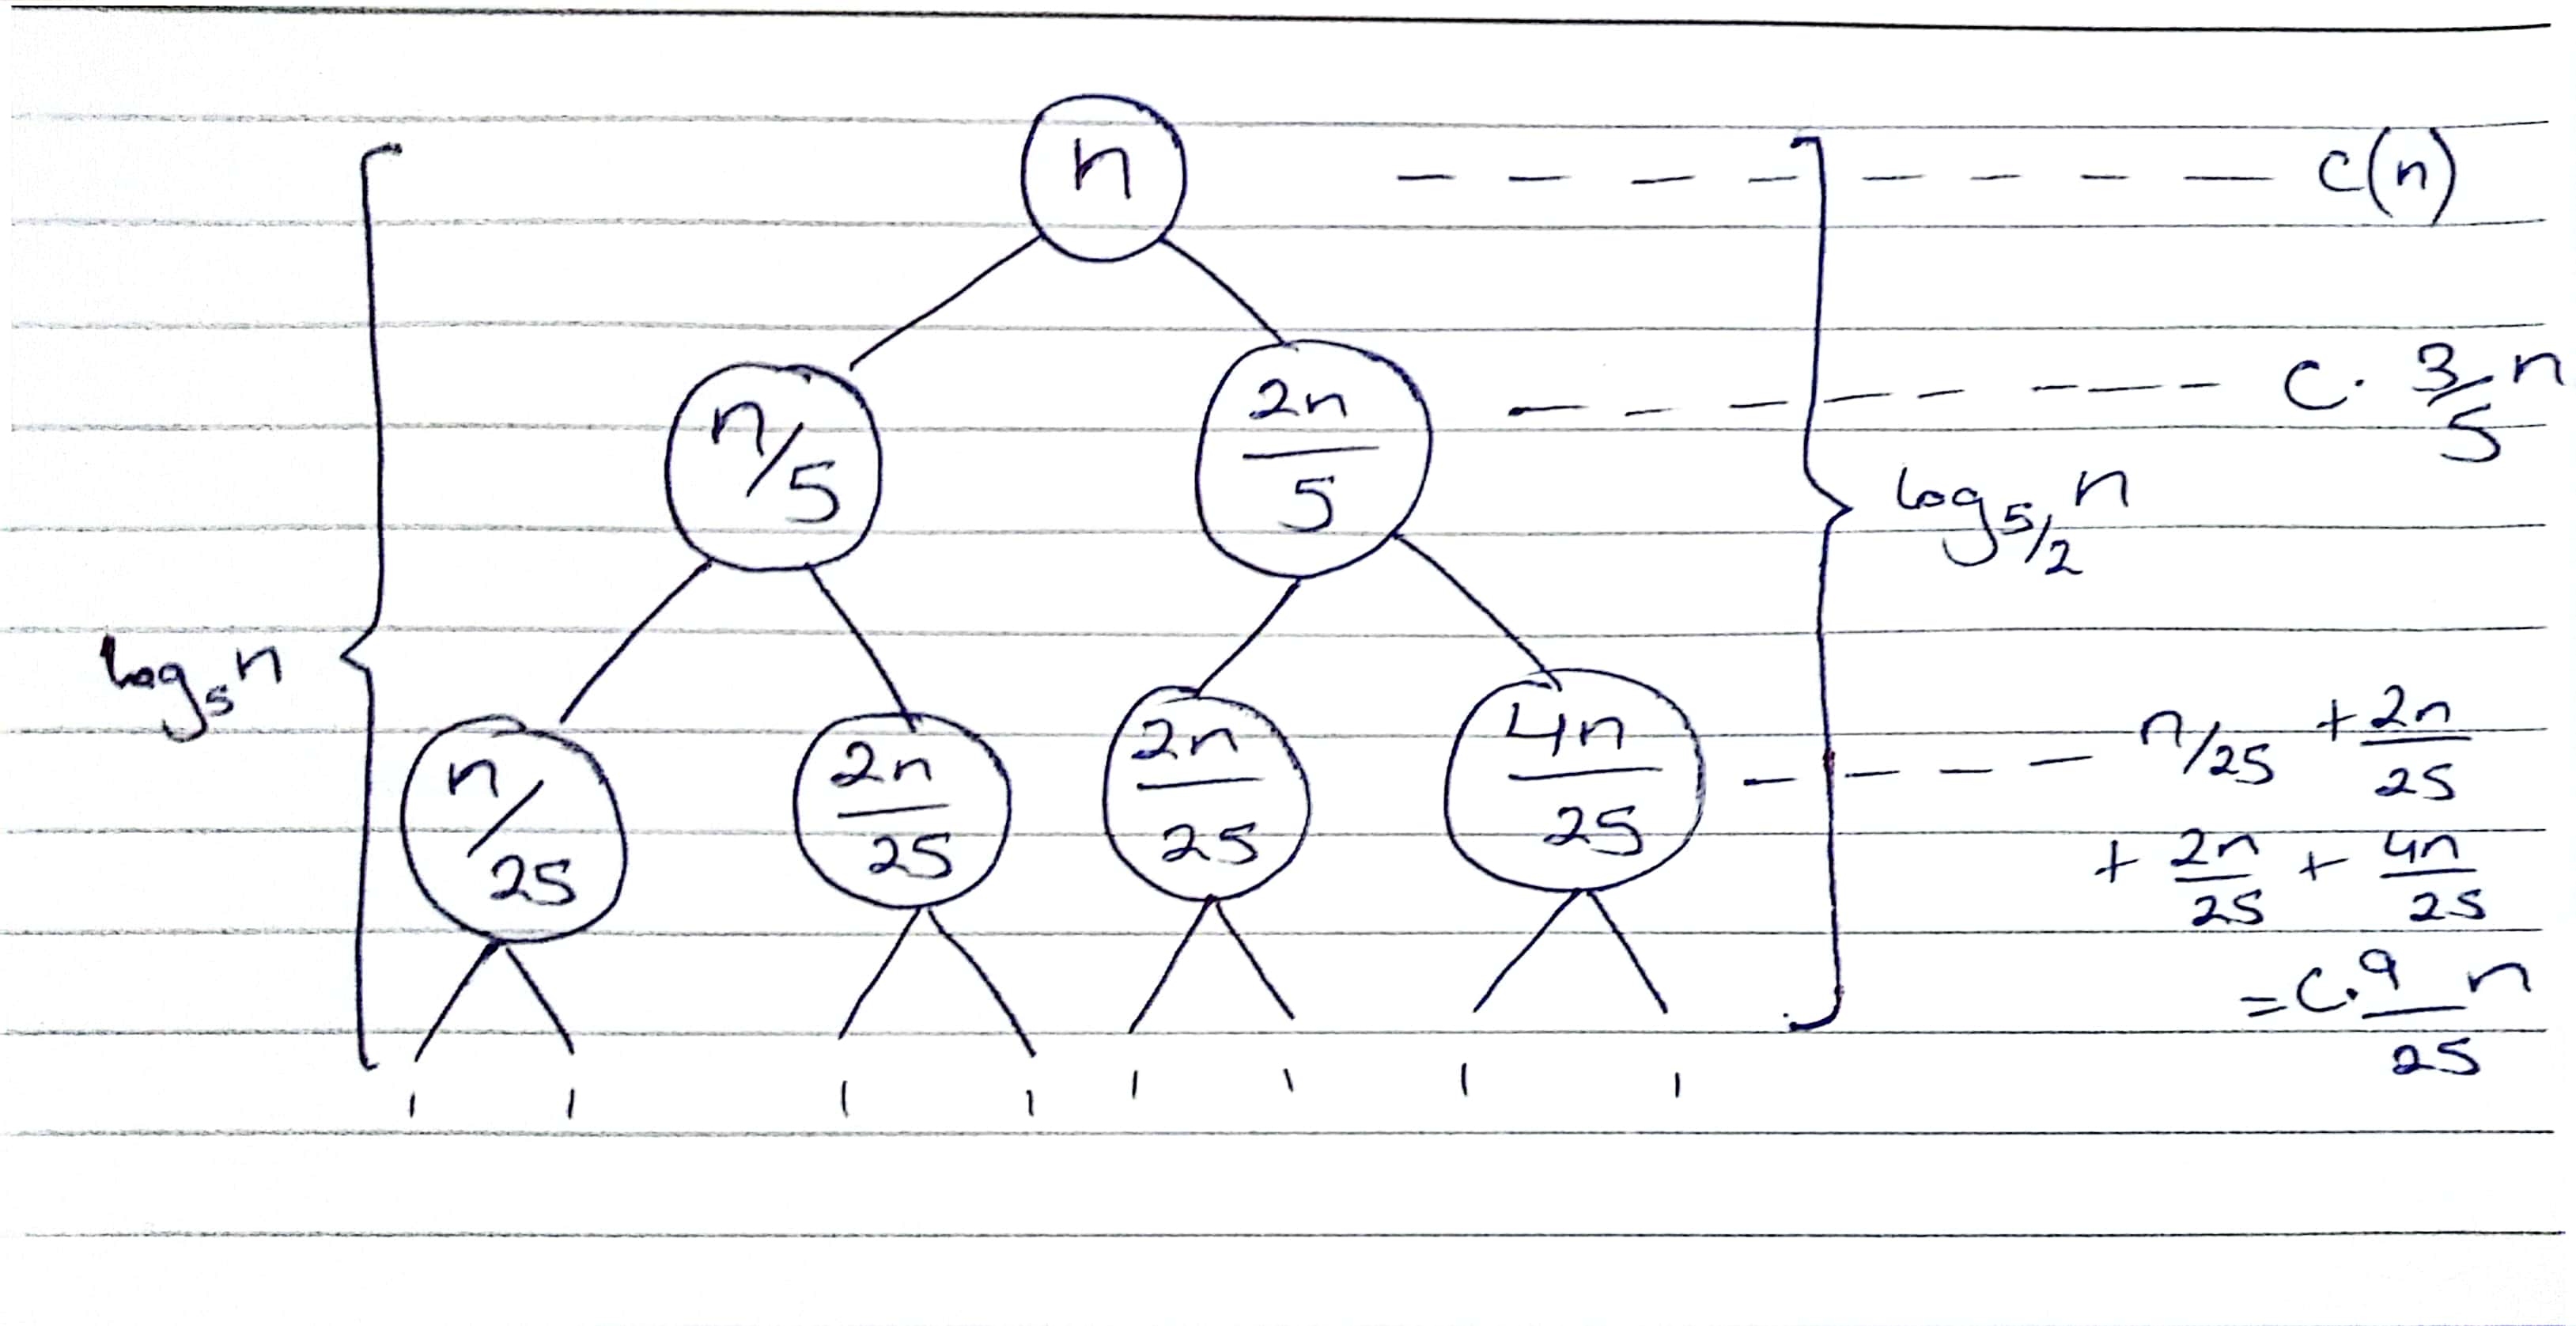 n - - - - - - - - c(n)
n/5 2n/5 - - - - - - - - c. 3/5 n
log₅/₂ n
log₅ n
n/25 2n/25 2n/25 4n/25 - - - - n/25 + 2n/25
+ 2n/25 + 4n/25
= c. 9/25 n